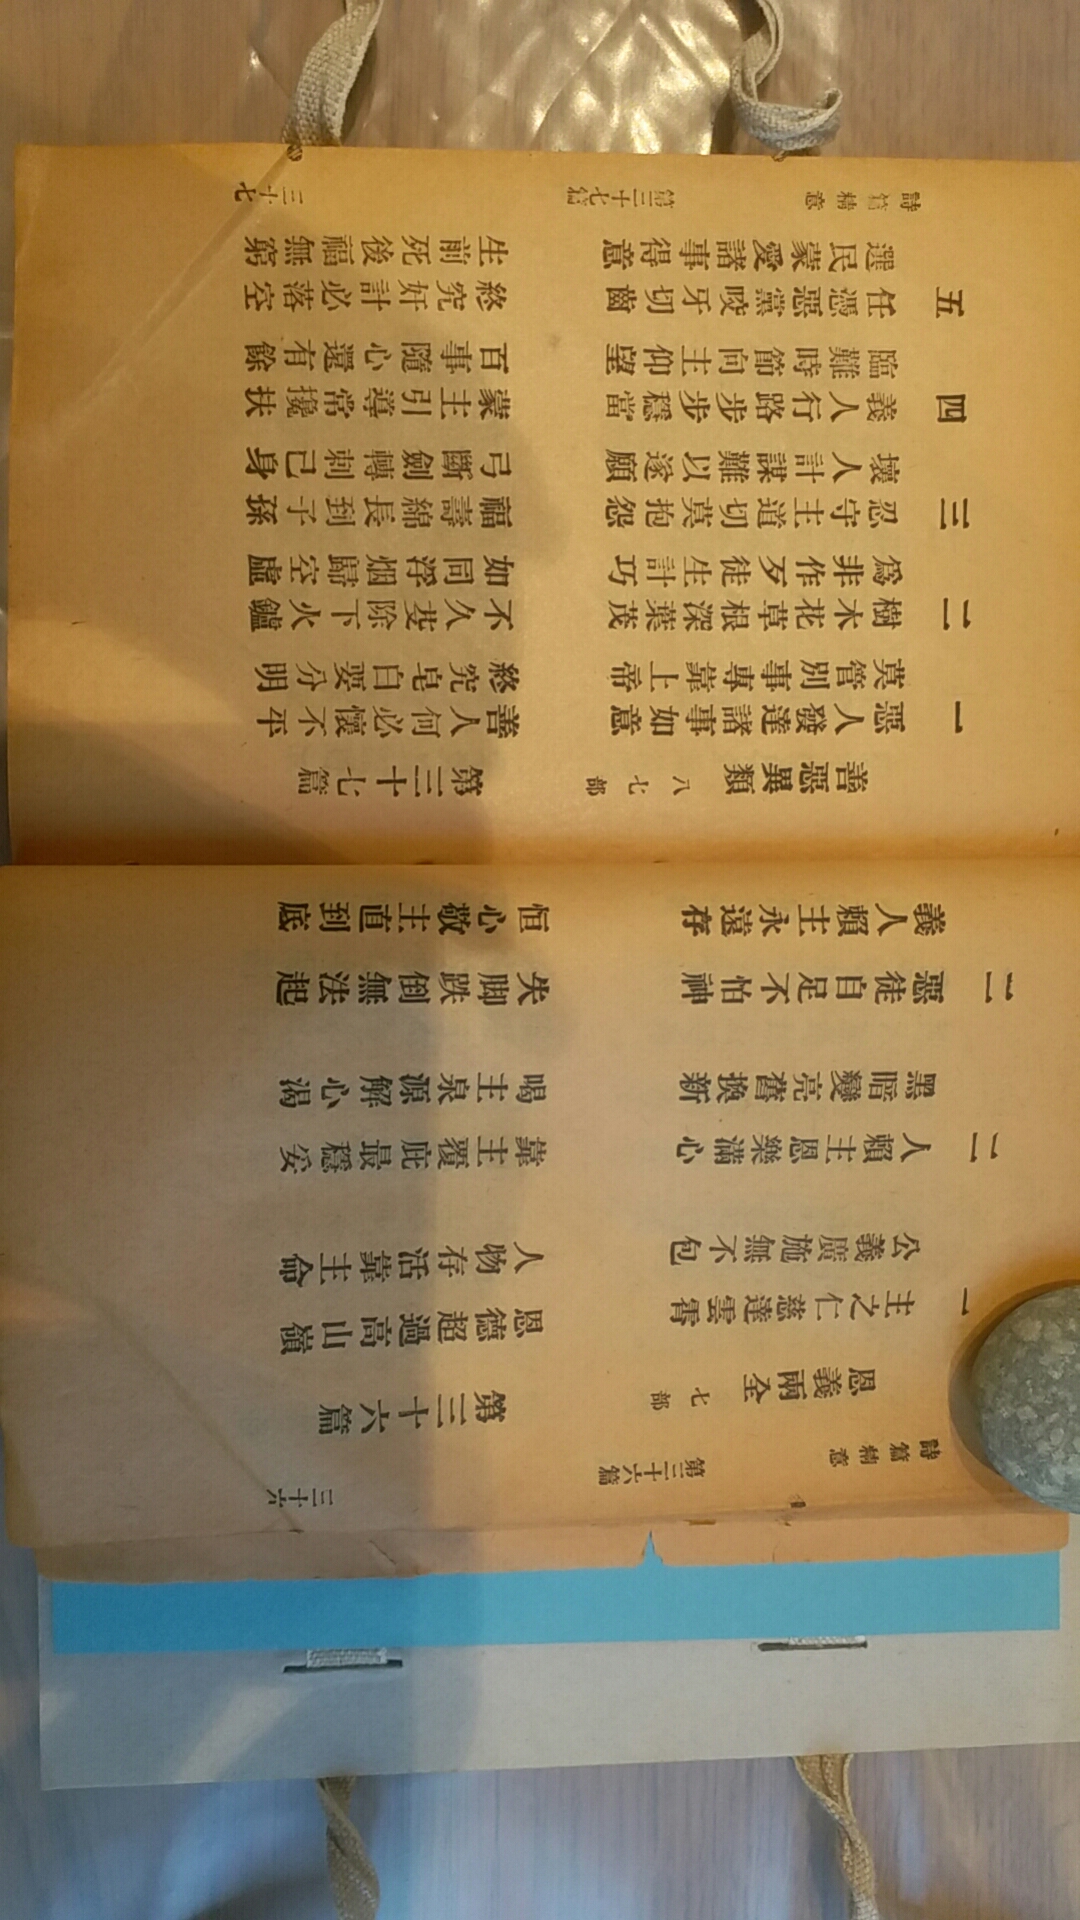 詩篇精意 第三十六篇 三十六
恩義兩全 七部 第三十六篇
一 主之仁慈達雲霄 恩德超過高山嶺
公義廣施無不包 人物存活靠主命
二 人賴主恩樂滿心 靠主覆庇最穩妥
黑暗變亮舊換新 喝主泉源解心渴
三 惡徒自足不怕神 失脚跌倒無法起
義人賴主永遠存 恒心敬主直到底
善惡異類 八七部 第三十七篇
一 惡人發達諸事如意 善人何必懷不平
莫管別事專靠上帝 終究皂白要分明
二 樹木花草根深葉茂 不久芟除下火鑪
為非作歹徒生計巧 如同浮烟歸空虛
三 忍守主道切莫抱怨 福壽綿長到子孫
壞人計謀難以遂願 弓斷劍轉刺己身
四 義人行路步步穩當 蒙主引導常攙扶
臨難時節向主仰望 百事隨心還有餘
五 任憑惡黨咬牙切齒 終究奸計必落空
選民蒙愛諸事得意 生前死後福無窮
詩篇精意 第三十七篇 三十七